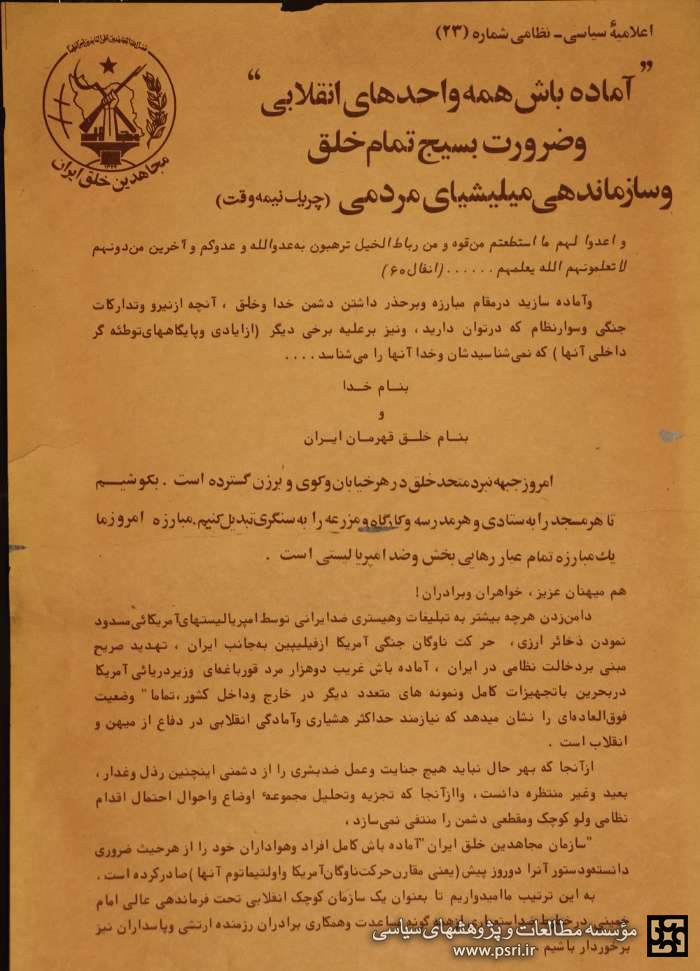 اعلامیهٔ سیاسی - نظامی شماره (۲۳)
مجاهدین خلق ایران
"آماده باش همه واحدهای انقلابی"
وضرورت بسیج تمام خلق
وسازماندهی میلیشیای مردمی (چریک نیمه وقت)
و اعدوا لهم ما استطعتم من قوه و من رباط الخیل ترهبون به عدوالله و عدوکم و آخرین من دونهم
لا تعلمونهم الله یعلمهم ...... (انفال ۶۰)
وآماده سازید درمقام مبارزه وبرحذر داشتن دشمن خدا وخلق ، آنچه ازنیرو وتدارکات
جنگی وسوارنظام که درتوان دارید ، ونیز برعلیه برخی دیگر (ازایادی وپایگاههای توطئه گر
داخلی آنها) که نمی شناسیدشان وخدا آنها را می شناسد ....
بنام خدا
و
بنام خلق قهرمان ایران
امروز جبهه نبرد متحد خلق در هر خیابان وکوی و برزن گسترده است . بکوشیم
تا هر مسجد را به ستادی و هر مدرسه و کارگاه و مزرعه را به سنگری تبدیل کنیم. مبارزه امروز ما
یک مبارزه تمام عیار رهایی بخش وضد امپریالیستی است .
هم میهنان عزیز ، خواهران وبرادران !
دامن زدن هرچه بیشتر به تبلیغات وهیستری ضدایرانی توسط امپریالیستهای آمریکائی مسدود
نمودن ذخائر ارزی ، حرکت ناوگان جنگی آمریکا ازفیلیپین به جانب ایران ، تهدید صریح
مبنی بردخالت نظامی در ایران ، آماده باش غریب دوهزار مرد قورباغه ای وزیردریائی آمریکا
دربحرین باتجهیزات کامل ونمونه های متعدد دیگر در خارج وداخل کشور ،تماما" وضعیت
فوق العاده ای را نشان میدهد که نیازمند حداکثر هشیاری وآمادگی انقلابی در دفاع از میهن و
انقلاب است .
ازآنجا که بهر حال نباید هیچ جنایت وعمل ضدبشری را از دشمنی اینچنین رذل وغدار ،
بعید وغیر منتظره دانست ، وازآنجا که تجزیه وتحلیل مجموعهٔ اوضاع واحوال احتمال اقدام
نظامی ولو کوچک ومقطعی دشمن را منتفی نمی سازد ،
"سازمان مجاهدین خلق ایران "آماده باش کامل افراد وهواداران خود را از هرحیث ضروری
دانسته ودستور آنرا دوروز پیش (یعنی مقارن حرکت ناوگان آمریکا واولتیماتوم آنها) صادرکرده است .
به این ترتیب ما امیدواریم تا بعنوان یک سازمان کوچک انقلابی تحت فرماندهی عالی امام
خمینی در هرگونه مساعدت وهمکاری برادران رزمنده ارتشی و پاسداران نیز
برخوردار باشیم
مؤسسه مطالعات و پژوهشهای سیاسی
www.psri.ir